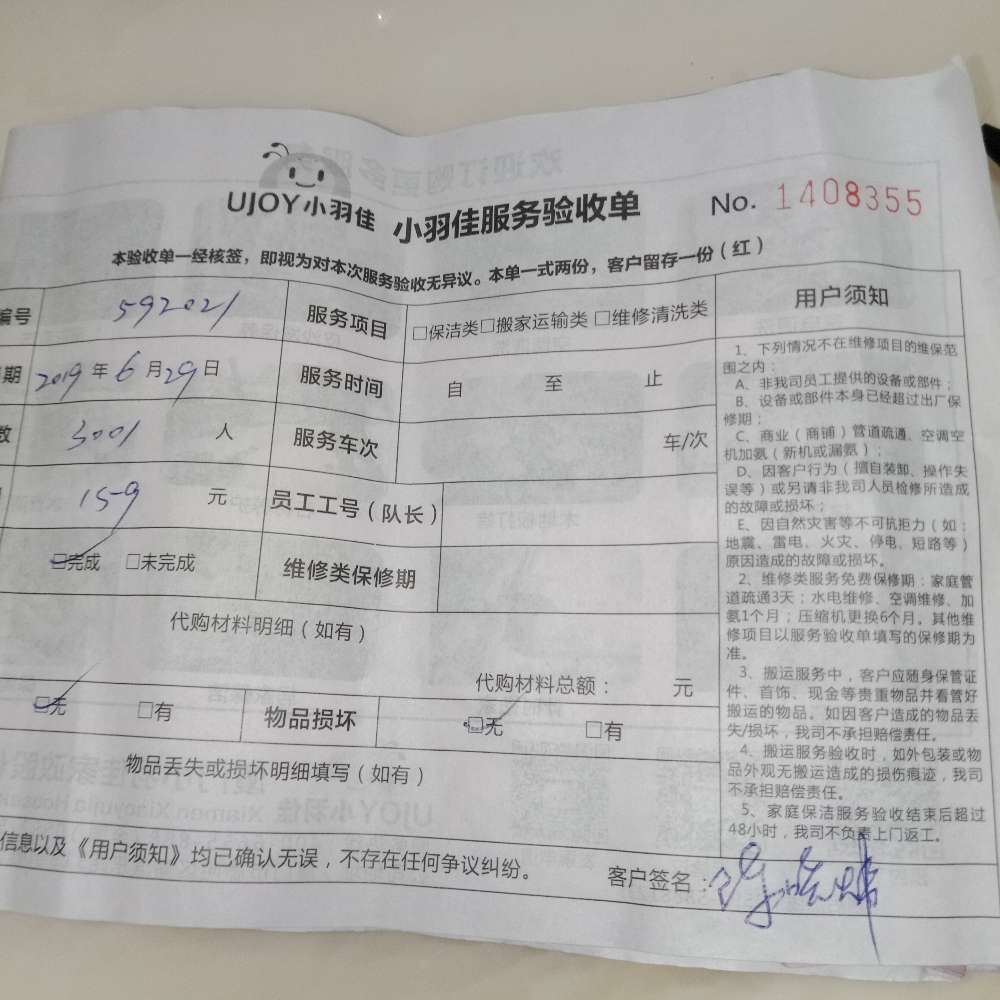 UJOY小羽佳 小羽佳服务验收单 No. 1408355
本验收单一经核签，即视为对本次服务验收无异议。本单一式两份，客户留存一份（红）
编号 592021 服务项目 □保洁类□搬家运输类 □维修清洗类
期 2019 年 6 月 29 日 服务时间 自 至 止
数 3001 人 服务车次 车/次
159 元 员工工号（队长）
□完成 □未完成 维修类保修期
代购材料明细（如有）
代购材料总额： 元
□无 □有 物品损坏 □无 □有
物品丢失或损坏明细填写（如有）
信息以及《用户须知》均已确认无误，不存在任何争议纠纷。
客户签名：
用户须知
1、下列情况不在维修项目的维保范
围之内：
A、非我司员工提供的设备或部件；
B、设备或部件本身已经超过出厂保
修期；
C、商业（商铺）管道疏通、空调空
机加氨（新机或漏氨）；
D、因客户行为（擅自装卸、操作失
误等）或另请非我司人员检修所造成
的故障或损坏；
E、因自然灾害等不可抗拒力（如：
地震、雷电、火灾、停电、短路等）
原因造成的故障或损坏。
2、维修类服务免费保修期：家庭管
道疏通3天；水电维修、空调维修、加
氨1个月；压缩机更换6个月。其他维
修项目以服务验收单填写的保修期为
准。
3、搬运服务中，客户应随身保管证
件、首饰、现金等贵重物品并看管好
搬运的物品。如因客户造成的物品丢
失/损坏，我司不承担赔偿责任。
4、搬运服务验收时，如外包装或物
品外观无搬运造成的损伤痕迹，我司
不承担赔偿责任。
5、家庭保洁服务验收结束后超过
48小时，我司不负责上门返工。